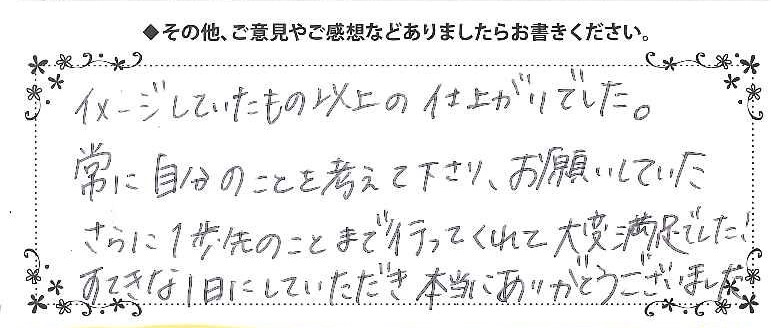 ◆その他、ご意見やご感想などありましたらお書きください。
イメージしていたもの以上の仕上がりでした。
常に自分のことを考えて下さり、お願いしていた
さらに1歩先のことまで行ってくれて大変満足でした、
すてきな1日にしていただき本当にありがとうございました